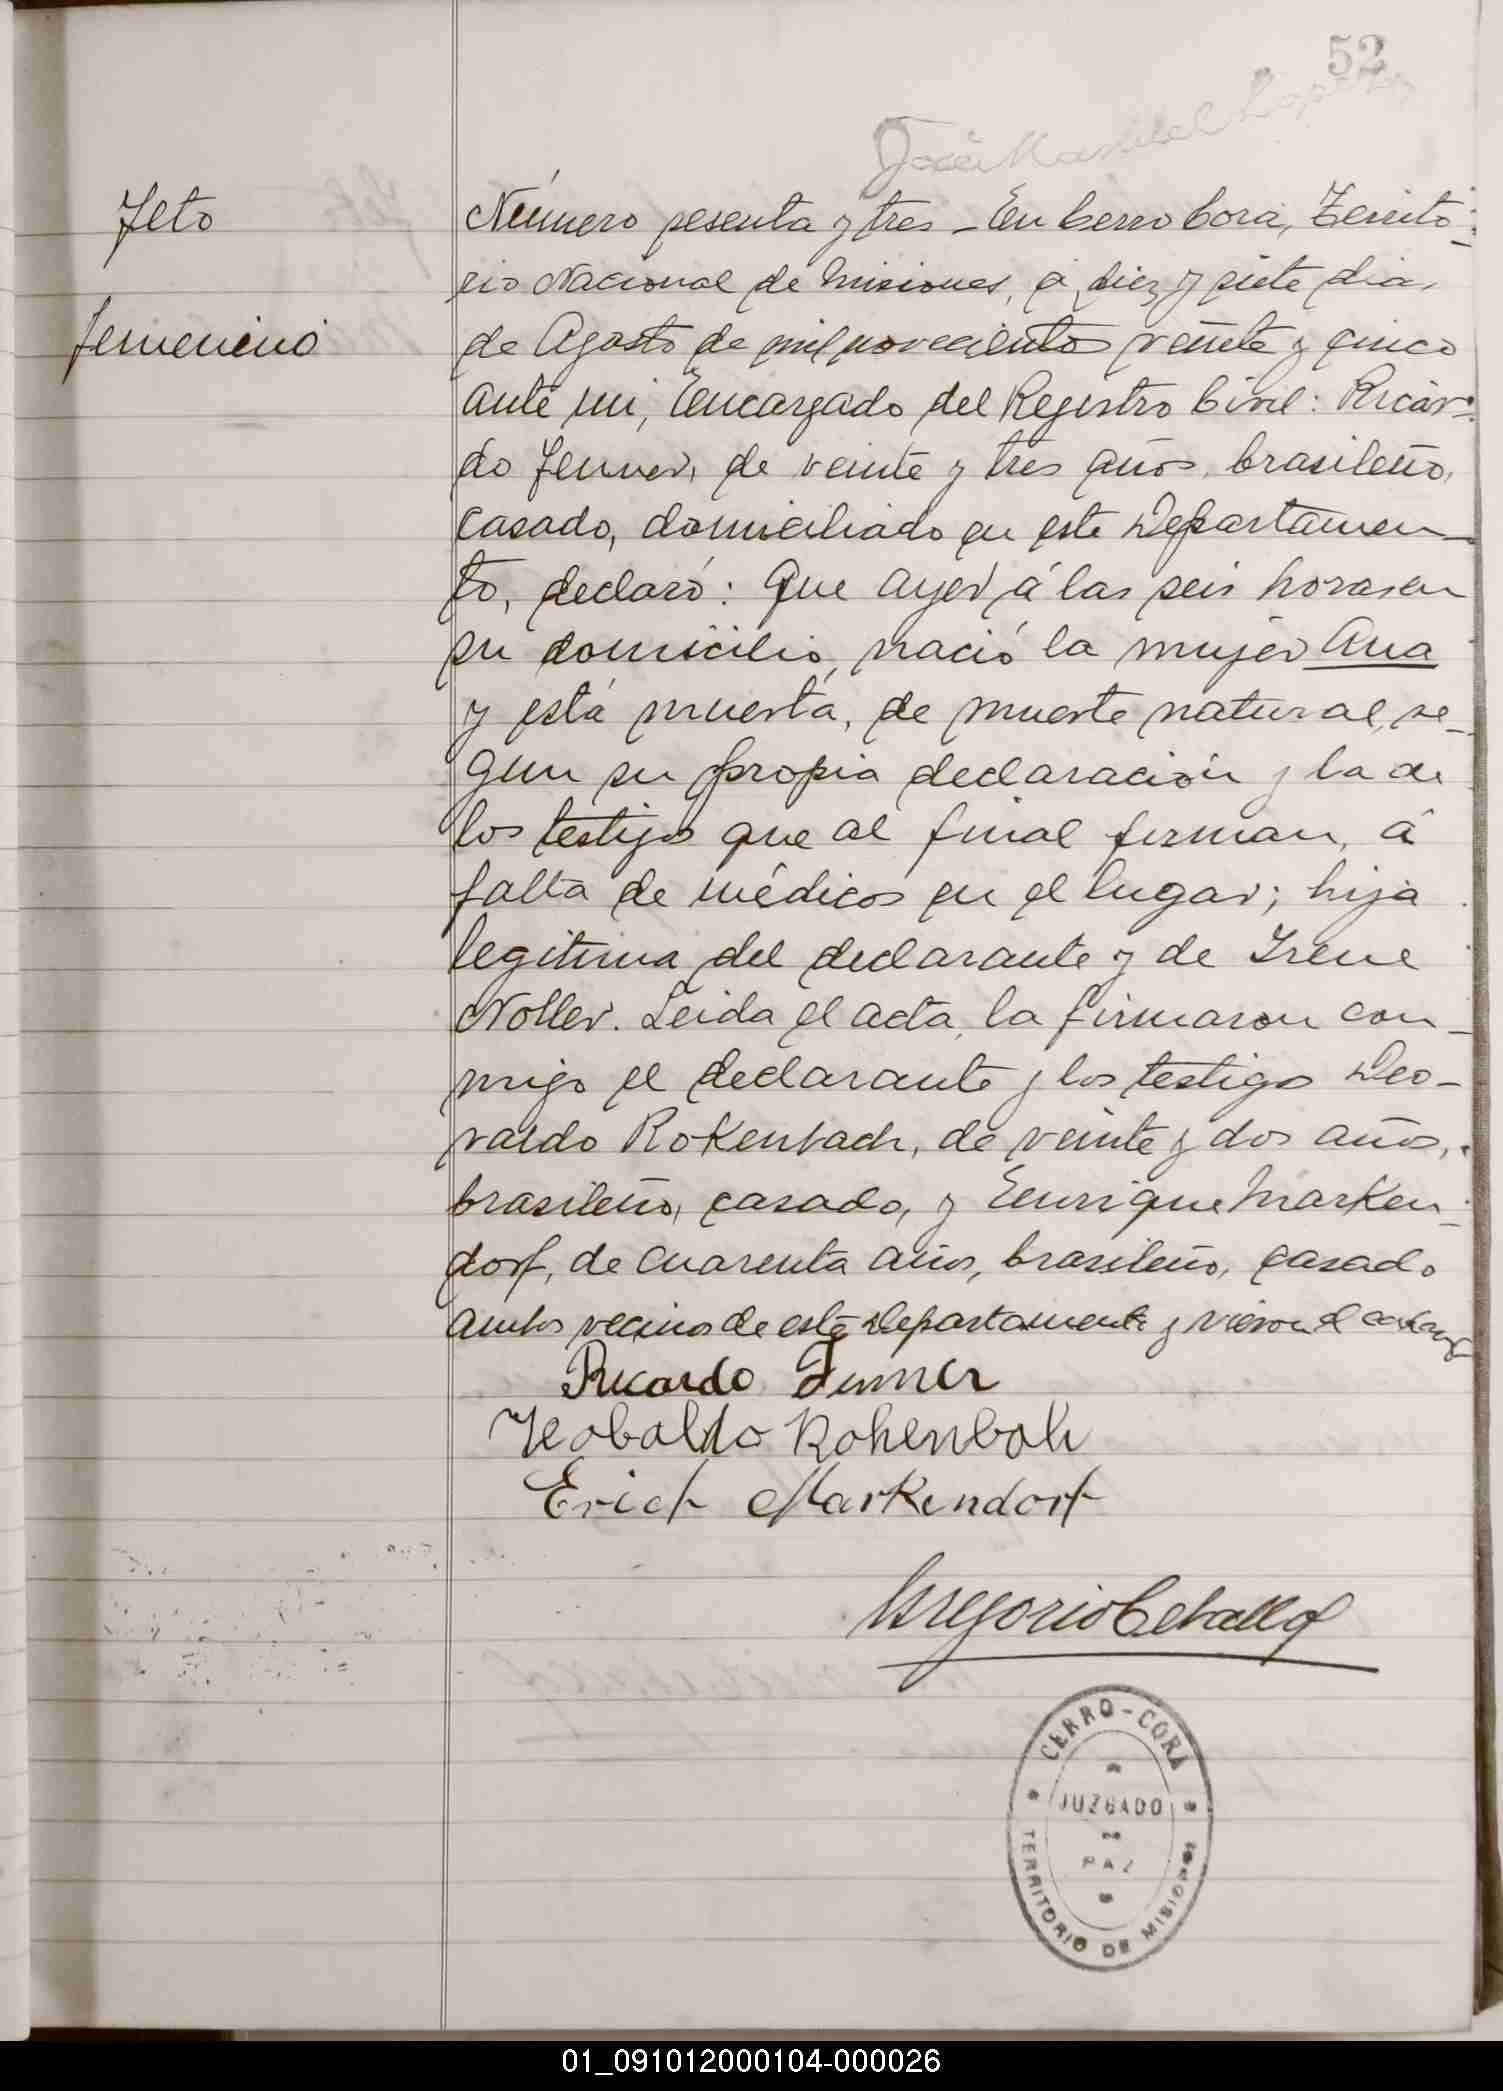 52
José Manuel Lopez
Feto
femenino
Número sesenta y tres - En Cerro Corá, Territo-
rio Nacional de Misiones, á diez y siete dias
de Agosto de mil novecientos veinte y cinco
ante mi, Encargado del Registro Civil: Ricar-
do Fenner, de veinte y tres años, brasileño,
casado, domiciliado en este Departamen-
to, declaró: Que ayer á las seis horas en
su domicilio, nació la mujer Ana
y está muerta, de muerte natural, se-
gun su propia declaración y la de
los testigos que al final firman, á
falta de médicos en el lugar; hija
legitima del declarante y de Irene
Noller. Leida el acta, la firmaron con-
migo el declarante y los testigos Deo-
valdo Rokenbach, de veinte y dos años,
brasileño, casado, y Enrique Marken-
dorf, de cuarenta años, brasileño, casado
ambos vecinos de este Departamento y vieron el
Ricardo Fenner
Teobaldo Rohenboh
Erich Markendorf
Gregorio Ceballos
CERRO-CORÁ
JUZGADO
DE
PAZ
TERRITORIO DE MISIONES
01_091012000104-000026